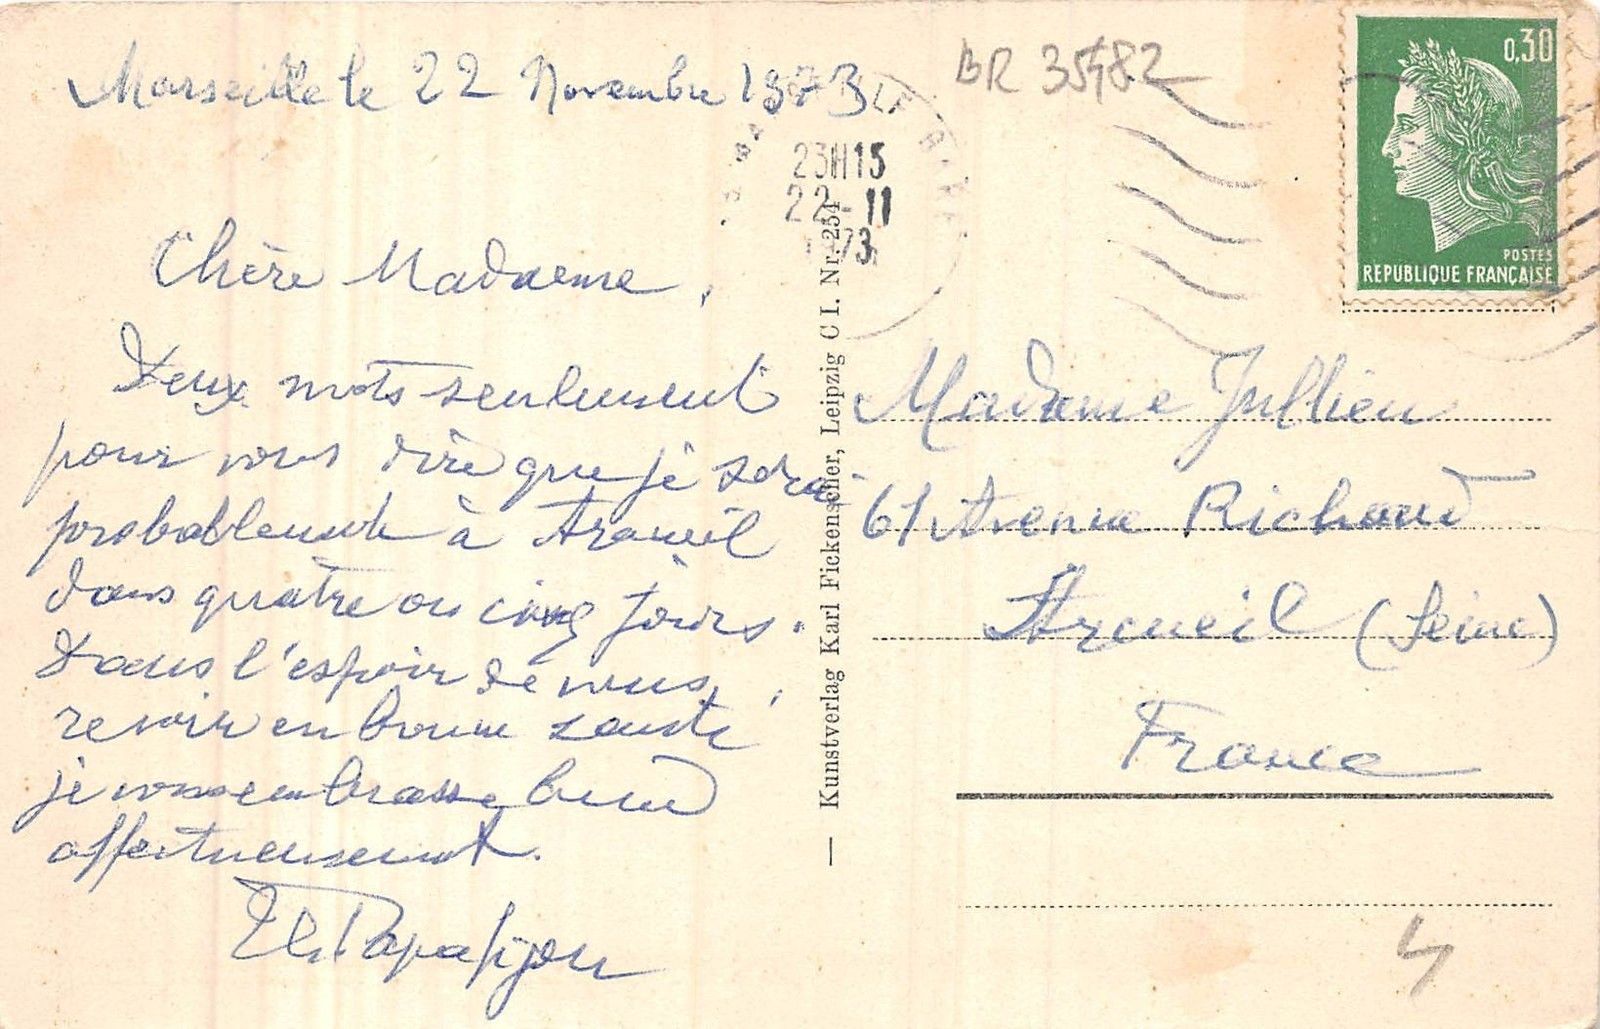 Marseille le 22 Novembre 1973
BR 35482
0,30
23H15
22-11
1973
POSTES
REPUBLIQUE FRANÇAISE
Chère Madame,
Deux mots seulement
pour vous dire que je serai
probablement à Arcueil
dans quatre ou cinq jours.
Dans l'espoir de vous
revoir en bonne santé,
je vous embrasse bien
affectueusement.
Kunstverlag Karl Fickenscher, Leipzig C 1. Nr. 254
Madame Jullien
61 Avenue Richaud
Arcueil (Seine)
France
4